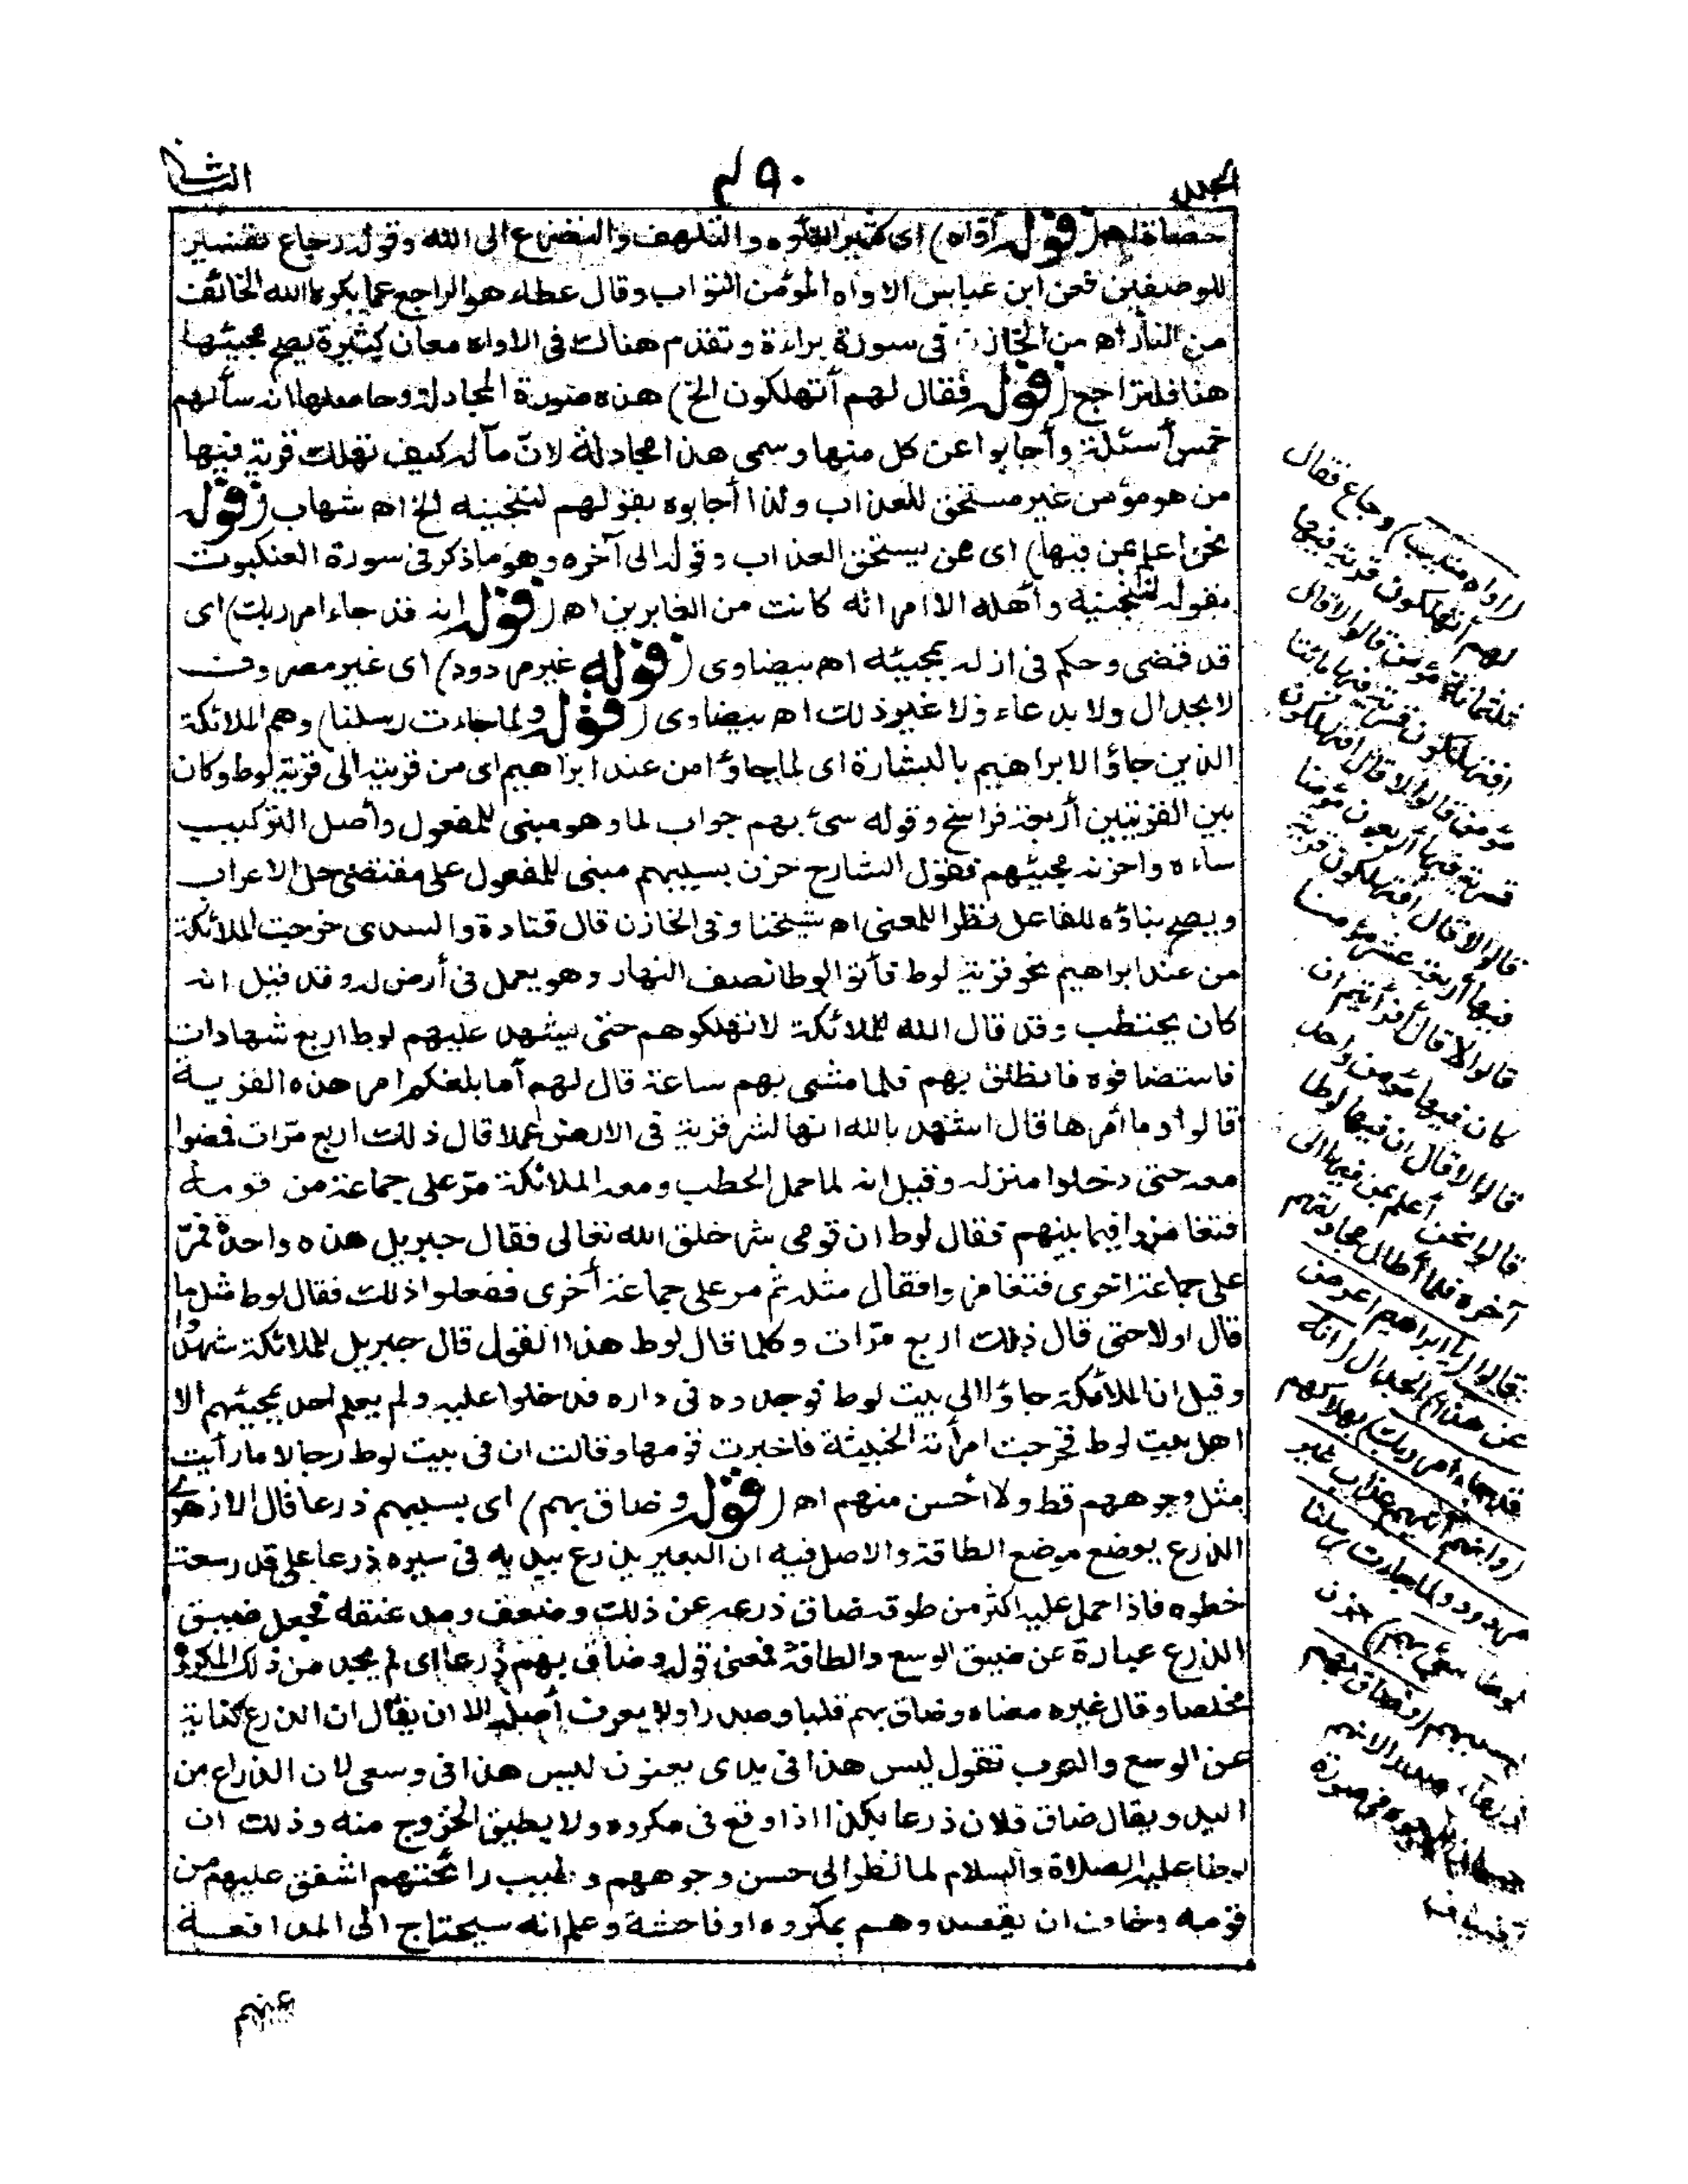 الجلد
٤٩٠
الثانى
(قوله أوّاه) اى كثير التأوه والتلهف والتضرع الى الله وقوله رجاع تفسير
للوصفين فعن ابن عباس الاواه المؤمن التواب وقال عطاء هو الراجع عما يكره الله الخائف
من النار اه من الخازن فى سورة براءة وتقدم هناك فى الاواه معان كثيرة يصح مجيئها
هنا فلتراجع (قوله فقال لهم أتهلكون الخ) هذه صورة المجادلة وحاصلها انه سألهم
خمس أسئلة وأجابوا عن كل منها وسمى هذا مجادلة لانّ مآله كيف تهلك قرية فيها
من هو مؤمن غير مستحق للعذاب ولذا أجابوه بقولهم لننجينه الخ اه شهاب (قوله
نحن اعلم بمن فيها) اى ممن يستحق العذاب وقوله الى آخره وهو ماذكر فى سورة العنكبوت
بقوله لننجينه وأهله الا امرأته كانت من الغابرين اه (قوله انه قد جاء امر ربك) اى
قد قضى وحكم فى ازله بمجيئه اه بيضاوى (قوله غير مردود) اى غير مصروف
لا بجدال ولا بدعاء ولا غير ذلك اه بيضاوى (قوله ولما جاءت رسلنا) وهم الملائكة
الذين جاؤا لابراهيم بالبشارة اى لما جاؤا من عند ابراهيم اى من قريته الى قرية لوط وكان
بين القريتين أربعة فراسخ وقوله سئ بهم جواب لما وهو مبنى للمفعول وأصل التركيب
ساءه واحزنه مجيئهم فقول الشارح حزن بسببهم مبنى للمفعول على مقتضى حل الاعراب
ويصح بناؤه للفاعل نظرا للمعنى اه شيخنا وفى الخازن قال قتادة والسدى خرجت الملائكة
من عند ابراهيم نحو قرية لوط فأتوا لوطا نصف النهار وهو يعمل فى أرض له وقد قيل انه
كان يحتطب وقد قال الله للملائكة لا تهلكوهم حتى يشهد عليهم لوط اربع شهادات
فاستضافوه فانطلق بهم فلما مشى بهم ساعة قال لهم أما بلغكم امر هذه القرية
قالوا وما أمرها قال اشهد بالله انها لشر قرية فى الارض عملا قال ذلك اربع مرّات فمضوا
معه حتى دخلوا منزله وقيل انه لما حمل الحطب ومعه الملائكة مرّ على جماعة من قومه
فتغامزوا فيما بينهم فقال لوط ان قومى شر خلق الله تعالى فقال جبريل هذه واحدة فمرّ
على جماعة اخرى فتغامزوا فقال مثله ثم مر على جماعة أخرى ففعلوا ذلك فقال لوط مثل ما
قال اولا حتى قال ذلك اربع مرّات وكلما قال لوط هذا القول قال جبريل للملائكة اشهدوا
وقيل ان الملائكة جاؤا الى بيت لوط فوجدوه فى داره فدخلوا عليه ولم يعلم احد بمجيئهم الا
اهل بيت لوط فخرجت امرأته الخبيثة فاخبرت قومها وقالت ان فى بيت لوط رجالا ما رأيت
مثل وجوههم قط ولا أحسن منهم اه (قوله وضاق بهم) اى بسببهم ذرعا قال الازهرى
الذرع يوضع موضع الطاقة والاصل فيه ان البعير يذرع بيديه فى سيره ذرعا على قدر سعة
خطوه فاذا حمل عليه اكثر من طوقه ضاق ذرعه عن ذلك وضعف ومد عنقه فجعل ضيق
الذرع عبارة عن ضيق الوسع والطاقة فمعنى قوله وضاق بهم ذرعا اى لم يجد من ذلك المكروه
مخلصا وقال غيره معناه وضاق بهم قلبا وصدرا ولا يعرف أصله الا ان يقال ان الذرع كناية
عن الوسع والعرب تقول ليس هذا فى يدى يعنون ليس هذا فى وسعى لان الذراع من
اليد ويقال ضاق فلان ذرعا بكذا اذا وقع فى مكروه ولا يطيق الخروج منه وذلك ان
لوطا عليه الصلاة والسلام لما نظر الى حسن وجوههم وطيب رائحتهم اشفق عليهم من
قومه وخاف ان يقصدوهم بمكروه او فاحشة وعلم انه سيحتاج الى المدافعة
(اواه منيب) رجاع فقال
لهم أتهلكون قرية فيها
ثلثمائة مؤمن قالوا لا قال
افتهلكون قرية فيها مائتا
مؤمن قالوا لا قال افتهلكون
قرية فيها أربعون مؤمنا
قالوا لا قال افتهلكون قرية
فيها أربعة عشر مؤمنا
قالوا لا قال أفرأيتم ان
كان فيها مؤمن واحد
قالوا لا قال ان فيها لوطا
قالوا نحن أعلم بمن فيها الى
آخره فلما أطال مجادلتهم
قالوا (يا ابراهيم اعرض
عن هذا) الجدال (انه
قد جاء امر ربك) بهلاكهم
(وانهم آتيهم عذاب غير
مردود ولما جاءت رسلنا
لوطا سئ بهم) حزن
بسببهم (وضاق بهم
ذرعا) صدرا لانهم
حسان الوجوه فى صورة